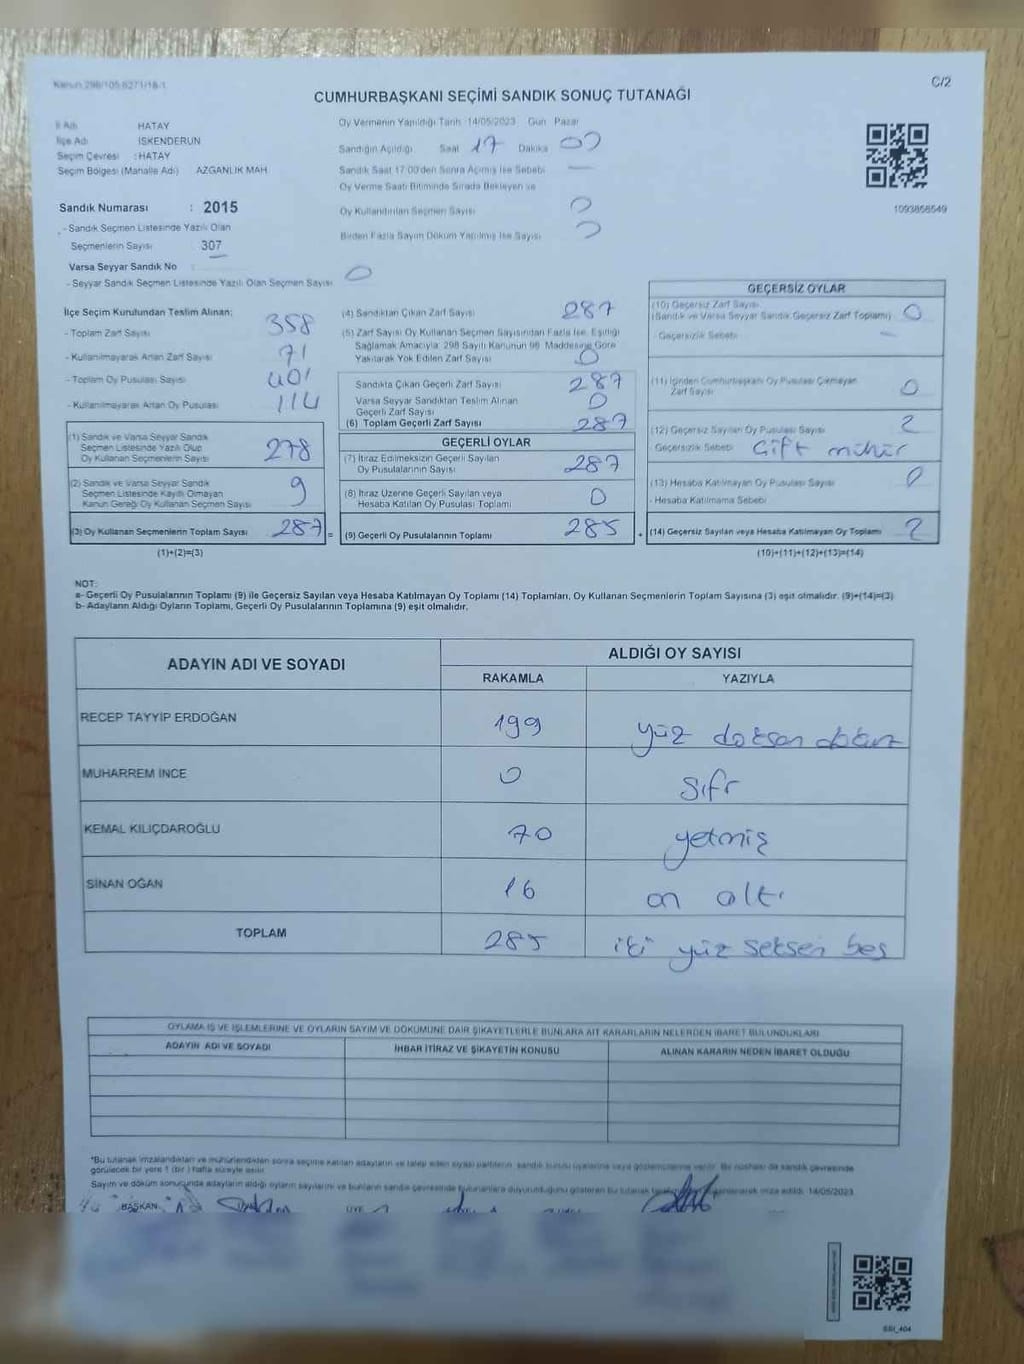 Kanun 298/105,6271/18-1
C/2
CUMHURBAŞKANI SEÇİMİ SANDIK SONUÇ TUTANAĞI
İl Adı HATAY
İlçe Adı İSKENDERUN
Seçim Çevresi : HATAY
Seçim Bölgesi (Mahalle Adı) AZGANLIK MAH
Oy Vermenin Yapıldığı Tarih 14/05/2023 Gün Pazar
Sandığın Açıldığı Saat 17 Dakika 00
Sandık Saat 17:00'den Sonra Açılmış İse Sebebi —
Oy Verme Saati Bitiminde Sırada Bekleyen ve
Oy Kullandırılan Seçmen Sayısı 0
Birden Fazla Sayım Döküm Yapılmış İse Sayısı 0
1093858549
Sandık Numarası : 2015
- Sandık Seçmen Listesinde Yazılı Olan
Seçmenlerin Sayısı 307
Varsa Seyyar Sandık No :
- Seyyar Sandık Seçmen Listesinde Yazılı Olan Seçmen Sayısı 0
İlçe Seçim Kurulundan Teslim Alınan:
- Toplam Zarf Sayısı 358
- Kullanılmayarak Artan Zarf Sayısı 71
- Toplam Oy Pusulası Sayısı 401
- Kullanılmayarak Artan Oy Pusulası 114
(1) Sandık ve Varsa Seyyar Sandık
Seçmen Listesinde Yazılı Olup
Oy Kullanan Seçmenlerin Sayısı 278
(2) Sandık ve Varsa Seyyar Sandık
Seçmen Listesinde Kayıtlı Olmayan
Kanun Gereği Oy Kullanan Seçmen Sayısı 9
(3) Oy Kullanan Seçmenlerin Toplam Sayısı 287 =
(1)+(2)=(3)
(4) Sandıktan Çıkan Zarf Sayısı 287
(5) Zarf Sayısı Oy Kullanan Seçmen Sayısından Fazla İse, Eşitliği
Sağlamak Amacıyla; 298 Sayılı Kanunun 98. Maddesine Göre
Yakılarak Yok Edilen Zarf Sayısı 0
Sandıkta Çıkan Geçerli Zarf Sayısı 287
Varsa Seyyar Sandıktan Teslim Alınan
Geçerli Zarf Sayısı 0
(6) Toplam Geçerli Zarf Sayısı 287
GEÇERLİ OYLAR
(7) İtiraz Edilmeksizin Geçerli Sayılan
Oy Pusulalarının Sayısı 287
(8) İtiraz Üzerine Geçerli Sayılan veya
Hesaba Katılan Oy Pusulası Toplamı 0
(9) Geçerli Oy Pusulalarının Toplamı 285 +
GEÇERSİZ OYLAR
(10) Geçersiz Zarf Sayısı
(Sandık ve Varsa Seyyar Sandık Geçersiz Zarf Toplamı) 0
- Geçersizlik Sebebi —
(11) İçinden Cumhurbaşkanı Oy Pusulası Çıkmayan
Zarf Sayısı 0
(12) Geçersiz Sayılan Oy Pusulası Sayısı 2
- Geçersizlik Sebebi Çift mühür
(13) Hesaba Katılmayan Oy Pusulası Sayısı 0
- Hesaba Katılmama Sebebi
(14) Geçersiz Sayılan veya Hesaba Katılmayan Oy Toplamı 2
(10)+(11)+(12)+(13)=(14)
NOT:
a- Geçerli Oy Pusulalarının Toplamı (9) ile Geçersiz Sayılan veya Hesaba Katılmayan Oy Toplamı (14) Toplamları, Oy Kullanan Seçmenlerin Toplam Sayısına (3) eşit olmalıdır. (9)+(14)=(3)
b- Adayların Aldığı Oyların Toplamı, Geçerli Oy Pusulalarının Toplamına (9) eşit olmalıdır.
ADAYIN ADI VE SOYADI ALDIĞI OY SAYISI
RAKAMLA YAZIYLA
RECEP TAYYİP ERDOĞAN 199 yüz doksan dokuz
MUHARREM İNCE 0 sıfır
KEMAL KILIÇDAROĞLU 70 yetmiş
SİNAN OĞAN 16 on altı
TOPLAM 285 iki yüz seksen beş
OYLAMA İŞ VE İŞLEMLERİNE VE OYLARIN SAYIM VE DÖKÜMÜNE DAİR ŞİKAYETLERLE BUNLARA AİT KARARLARIN NELERDEN İBARET BULUNDUKLARI
ADAYIN ADI VE SOYADI İHBAR İTİRAZ VE ŞİKAYETİN KONUSU ALINAN KARARIN NEDEN İBARET OLDUĞU
*Bu tutanak imzalandıktan ve mühürlendikten sonra seçime katılan adayların ve talep eden siyasi partilerin sandık kurulu üyelerine veya gözlemcilerine verilir. Bir nüshası da sandık çevresinde
görülecek bir yere 1 (bir) hafta süreyle asılır.
Sayım ve döküm sonucunda adayların aldığı oyların sayılarını ve bunların sandık çevresinde bulunanlara duyurulduğunu gösteren bu tutanak imza edildi. 14/05/2023
BAŞKAN ÜYE
SSI_404